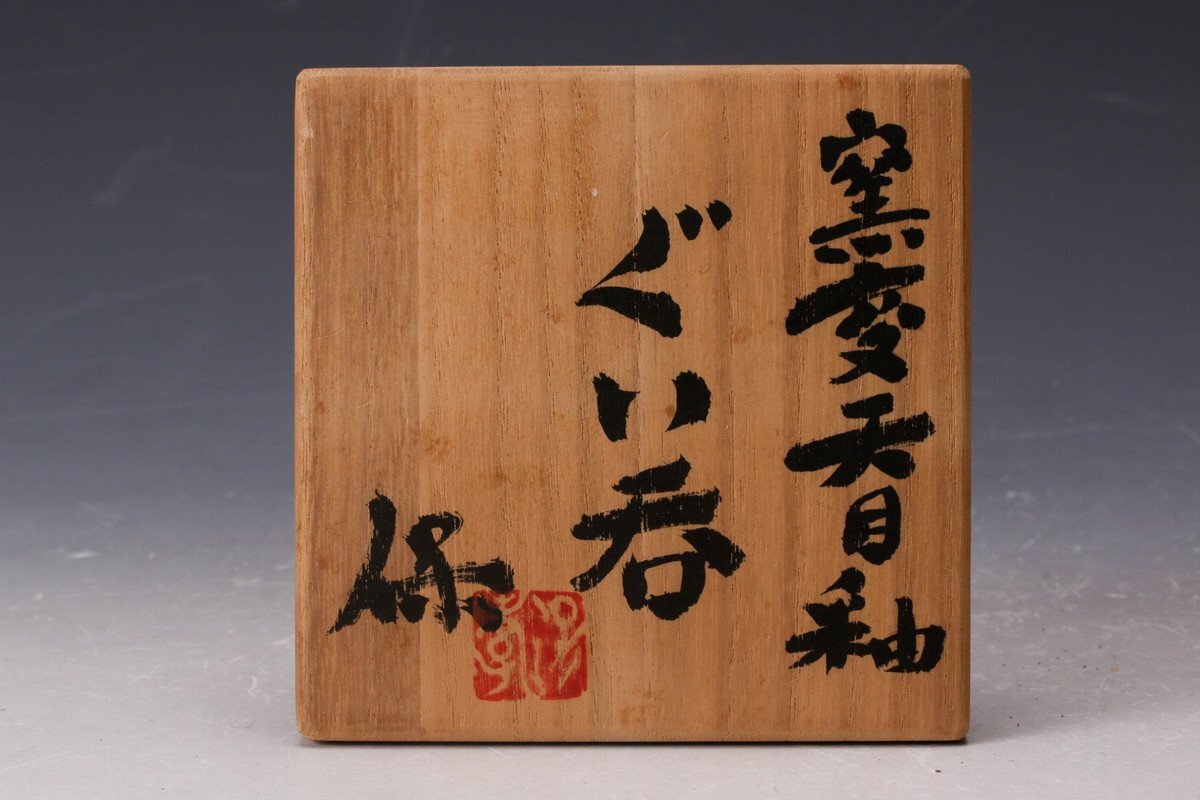 窯変天目釉
ぐい呑
保